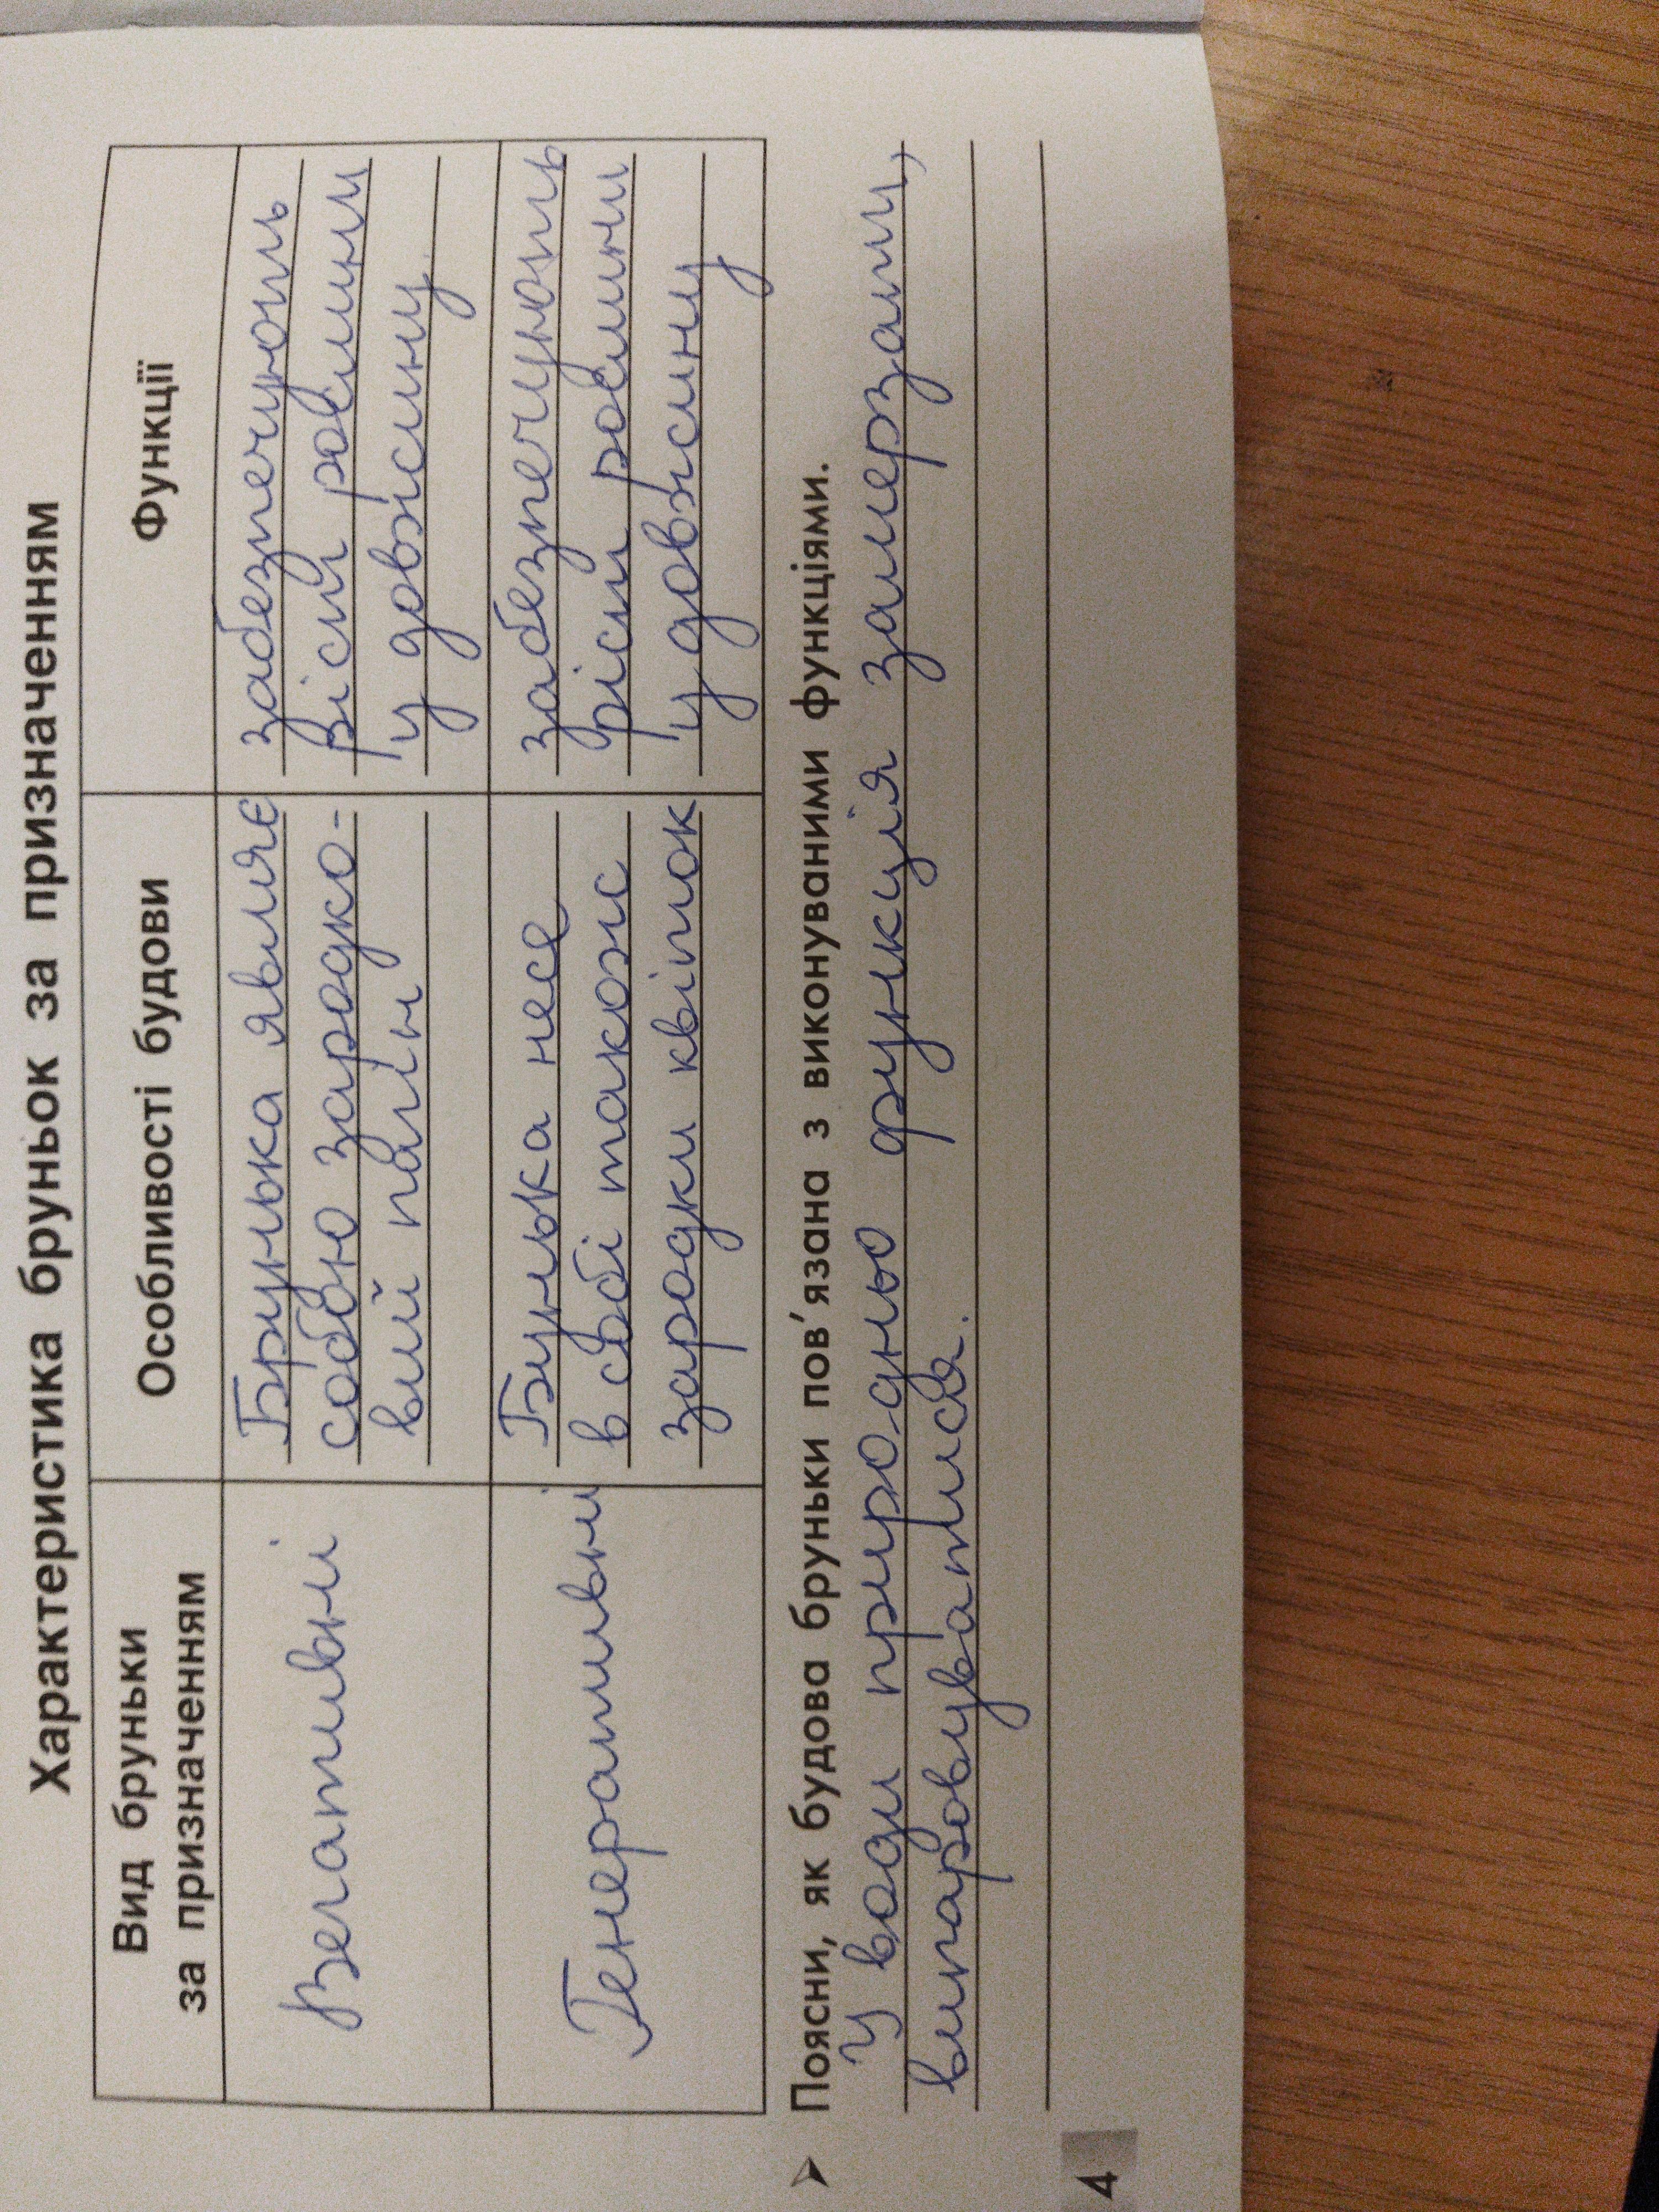 Характеристика бруньок за призначенням
Вид бруньки
за призначенням
Особливості будови
Функції
Вегативні
Брунька являє
собою зародко-
вий пагін
забезпечують
ріст рослини
у довжину
Генеративні
Бунька несе
в собі також
зародки квіток
забезпечують
ріст рослини
у довжину
➤ Поясни, як будова бруньки пов’язана з виконуваними функціями.
У води природньо функція замерзати,
випаровуватися.
4